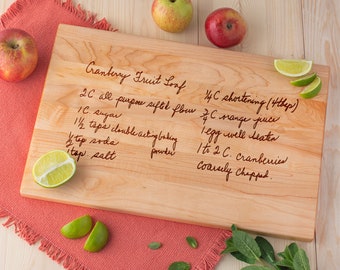 Cranberry Fruit Loaf
2 C all purpose sift'd flour
1 C sugar
1½ tsps double acting baking powder
½ tsp soda
1 tsp salt
¼ C shortening (4 tbsp)
¾ C orange juice
1 egg well beaten
1 to 2 C. cranberries
coarsely chopped.